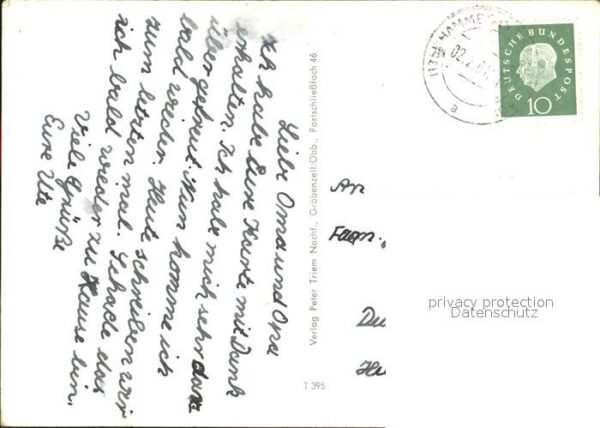 Liebe Oma und Opa
Ich habe Eure Karte mit Dank
erhalten. Ich habe mich sehr dar-
über gefreut. Nun komme ich
bald wieder. Heute schreiben wir
zum letzten mal. Schade das
ich bald wieder zu Hause bin.
Viele Grüße
Eure Ute
Verlag Peter Triem Nachf., Gröbenzell/Obb., Postschließfach 46
T 395
DEUTSCHE BUNDESPOST
10
An
Fam.
privacy protection
Datenschutz